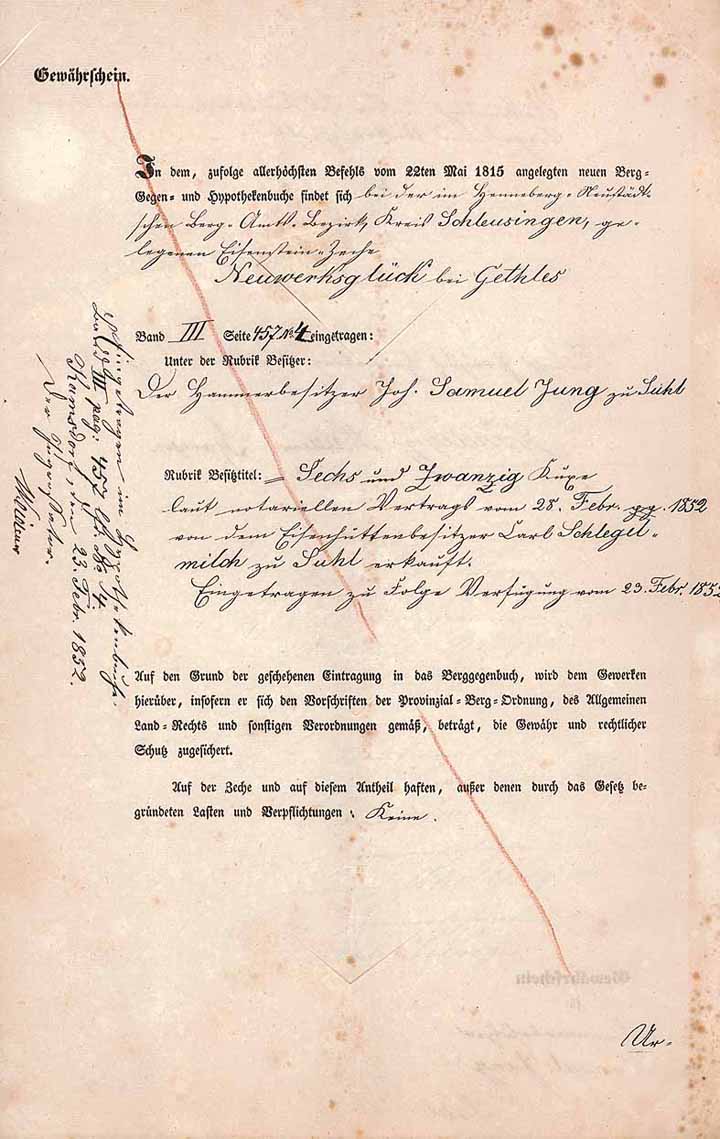 Gewährschein.
In dem, zufolge allerhöchsten Befehls vom 22ten Mai 1815 angelegten neuen Berg-
Gegen- und Hypothekenbuche findet sich bei der im Henneberg-Neustädt-
schen Berg-Amts-Bezirk, Kreis Schleusingen, ge-
legenen Eisenstein-Zeche
Neuwerksglück bei Gethles
Band III Seite 457 No. 4 eingetragen:
Unter der Rubrik Besitzer:
Der Hammerbesitzer Joh. Samuel Jung zu Suhl
Rubrik Besitztitel: = Sechs und Zwanzig Kuxe
laut notariellen Vertrags vom 28. Febr. 1852
von dem Eisenhüttenbesitzer Carl Schlegel-
milch zu Suhl erkauft.
Eingetragen zu Folge Verfügung vom 23. Febr. 1852
Auf den Grund der geschehenen Eintragung in das Berggegenbuch, wird dem Gewerken
hierüber, insofern er sich den Vorschriften der Provinzial-Berg-Ordnung, des Allgemeinen
Land-Rechts und sonstigen Verordnungen gemäß, beträgt, die Gewähr und rechtlicher
Schutz zugesichert.
Auf der Zeche und auf diesem Antheil haften, außer denen durch das Gesetz be-
gründeten Lasten und Verpflichtungen: Keine.
Ur-
Eingetragen im Hypothekenbuche
Band III pag: 457 No 4
den 23. Febr. 1852.
Der Ingrossator.
Gewährschein